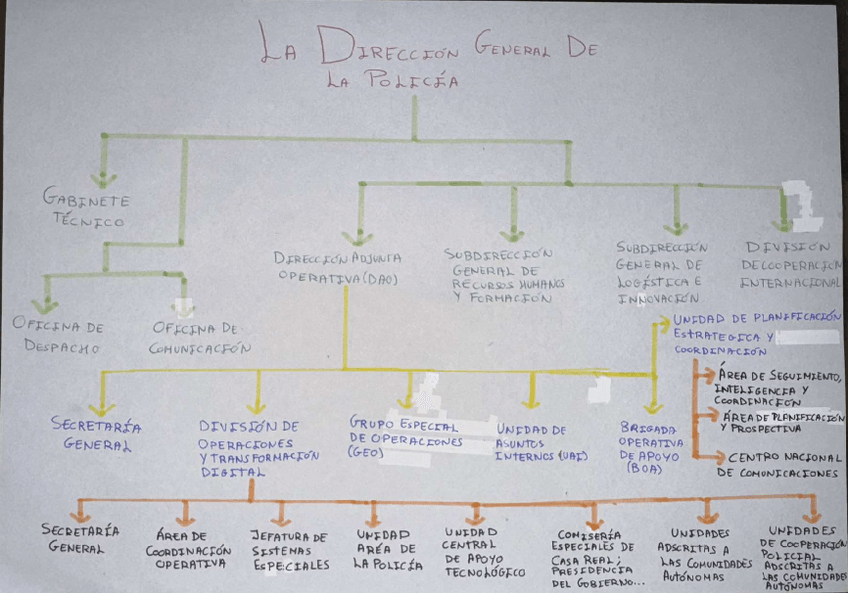 La Dirección General De
La Policía
Gabinete
Técnico
Dirección Adjunta
Operativa (DAO)
Subdirección
General de
Recursos Humanos
y Formación
Subdirección
General de
Logística e
Innovación
División
de Cooperación
Internacional
Oficina de
Despacho
Oficina de
Comunicación
Unidad de Planificación
Estrategica y
Coordinación
Área de Seguimiento,
Inteligencia y
Coordinación
Área de Planificación
y Prospectiva
Centro Nacional
de Comunicaciones
Secretaría
General
División de
Operaciones
y Transformación
Digital
Grupo Especial
de Operaciones
(GEO)
Unidad de
Asuntos
Internos (UAI)
Brigada
Operativa
de Apoyo
(BOA)
Secretaría
General
Área de
Coordinación
Operativa
Jefatura de
Sistemas
Especiales
Unidad
Aréa de
la Policía
Unidad
Central
de Apoyo
Tecnológico
Comisería
Especiales de
Casa Real;
Presidencia
del Gobierno...
Unidades
Adscritas a
las Comunidades
Autónomas
Unidades
de Cooperación
Policial
Adscritas a
las Comunidades
Autónomas